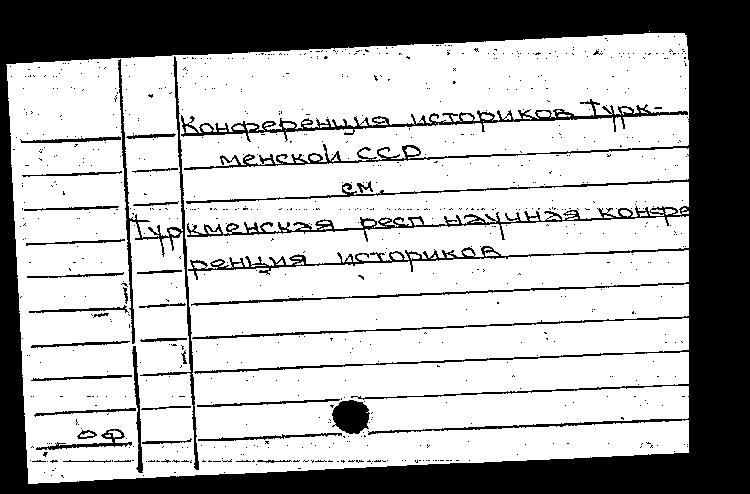 Конференция историков Турк-
менской ССР
см.
Туркменская респ научная конфе
ренция историков
оф